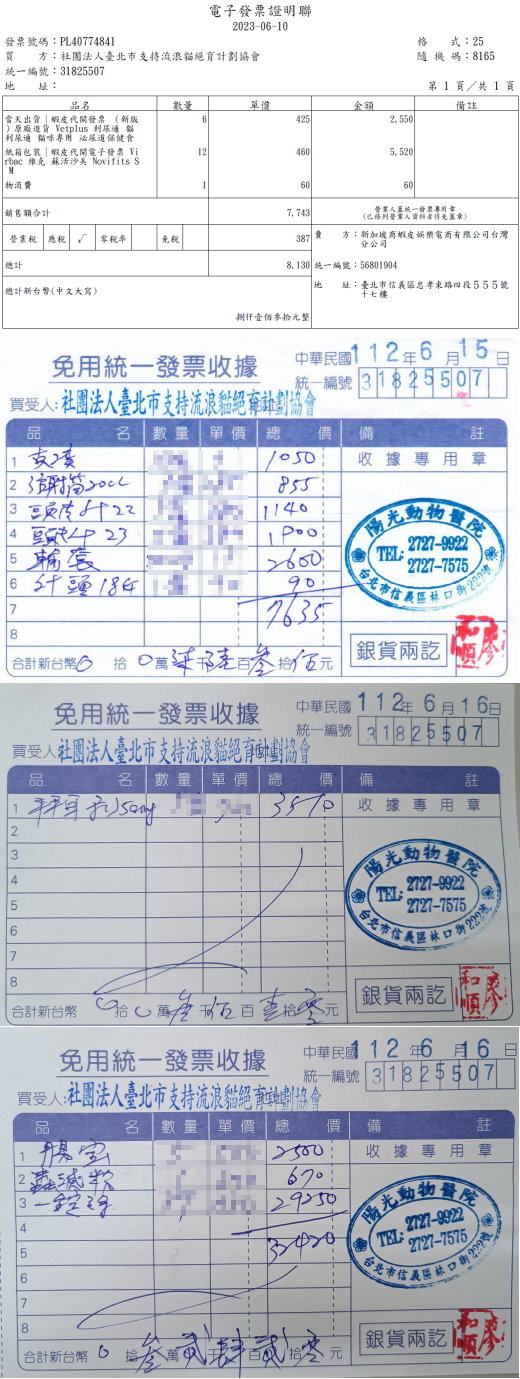 電子發票證明聯
2023-06-10
發票號碼：PL40774841 格 式：25
買 方：社團法人臺北市支持流浪貓絕育計劃協會 隨 機 碼：8165
統一編號：31825507
地 址： 第 1 頁／共 1 頁
品名 數量 單價 金額 備註
當天出貨｜蝦皮代開發票 （新版 6 425 2,550
）原廠進貨 Vetplus 利尿通 貓
利尿通 貓咪專用 泌尿道保健食
紙箱包裝｜蝦皮代開電子發票 Vi 12 460 5,520
rbac 維克 蘇活沙美 Novifits S
M
物流費 1 60 60
銷售額合計 7,743 營業人蓋統一發票專用章
(已條列營業人資料者得免蓋章)
營業稅 應稅 √ 零稅率 免稅 387
賣 方：新加坡商蝦皮娛樂電商有限公司台灣
分公司
總計 8,130 統一編號：56801904
總計新台幣(中文大寫) 地 址：臺北市信義區忠孝東路四段５５５號
十七樓
捌仟壹佰參拾元整
免用統一發票收據 中華民國 112年6月15日
統一編號 31825507
買受人：社團法人臺北市支持流浪貓絕育計劃協會
品 名 數量 單價 總 價 備 註
1 1050 收據專用章
2 20cc 855
3 22 1140
4 23 1900
5 2600
6 針頭 18G 90
7 7635
8
陽光動物醫院
TEL: 2727-9922
2727-7575
台北市信義區林口街222號
銀貨兩訖
合計新台幣0拾0萬柒千陸百叁拾伍元
免用統一發票收據 中華民國 112年6月16日
統一編號 31825507
買受人：社團法人臺北市支持流浪貓絕育計劃協會
品 名 數量 單價 總 價 備 註
1 50mg 3510 收據專用章
2
3
4
5
6
7
8
陽光動物醫院
TEL: 2727-9922
2727-7575
台北市信義區林口街222號
銀貨兩訖
合計新台幣0拾0萬叁千伍百壹拾零元
免用統一發票收據 中華民國 112年6月16日
統一編號 31825507
買受人：社團法人臺北市支持流浪貓絕育計劃協會
品 名 數量 單價 總 價 備 註
1 腸寶 2500 收據專用章
2 670
3 29250
4
5 32420
6
7
8
陽光動物醫院
TEL: 2727-9922
2727-7575
台北市信義區林口街222號
銀貨兩訖
合計新台幣0拾叁萬貳千肆百貳拾零元